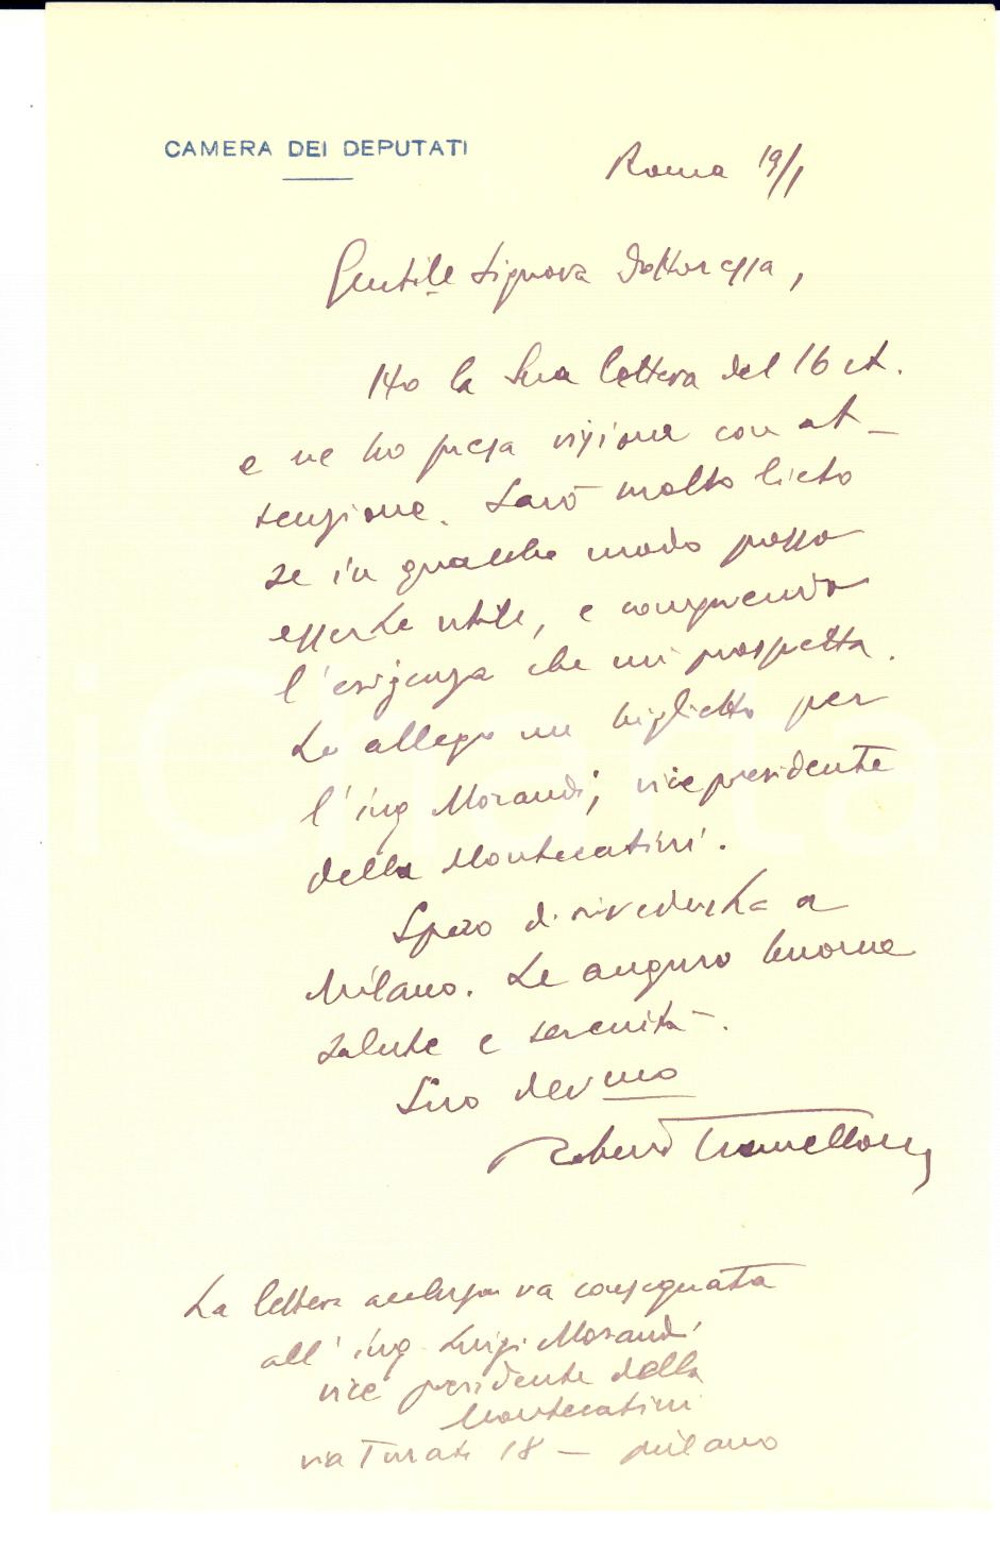 CAMERA DEI DEPUTATI
Roma 19/1
Gentile Signora Dottoressa,
Ho la Sua lettera del 16 ct.
e ne ho presa visione con at-
tenzione. Sarò molto lieto
se in qualche modo posso
esserLe utile, e comprendo
l'esigenza che mi prospetta.
Le allego un biglietto per
l'ing Morandi, vice presidente
della Montecatini.
Spero di rivederLa a
Milano. Le auguro buona
salute e serenità.
Suo dev.mo
Roberto Tremelloni
La lettera acclusa va consegnata
all'ing. Luigi Morandi
vice presidente della
Montecatini
via Turati 18 - Milano
iCharta